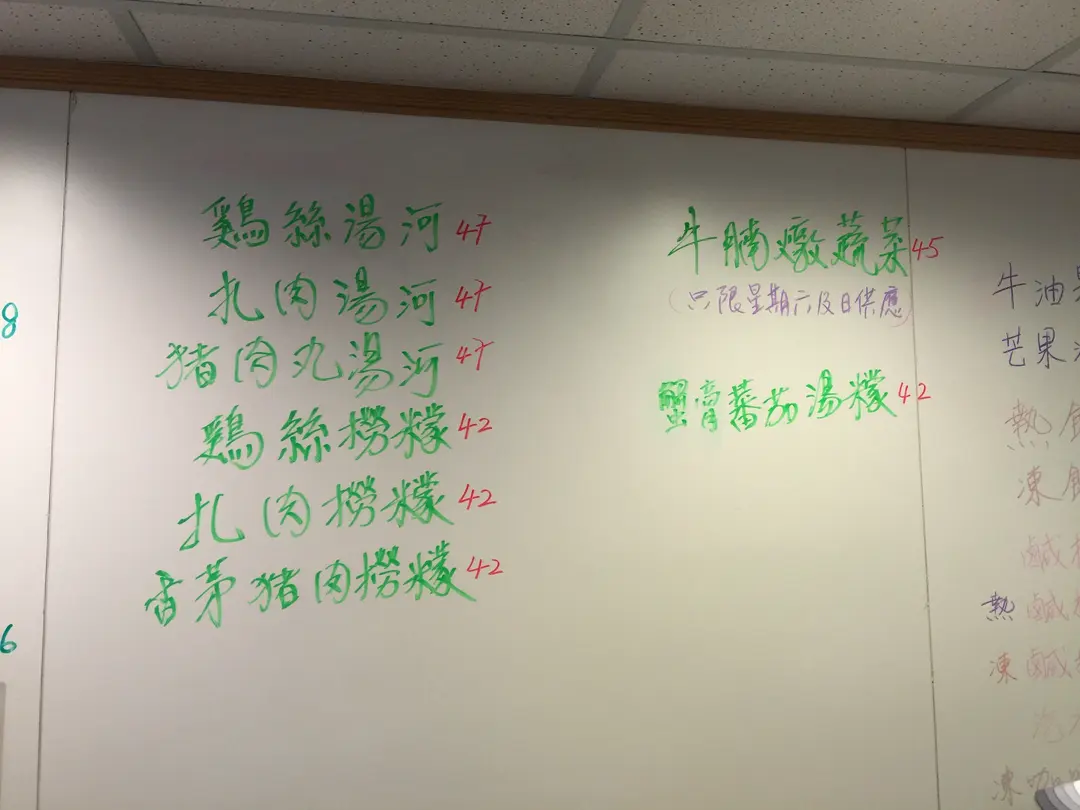 8
6
鷄絲湯河 47
扎肉湯河 47
猪肉丸湯河 47
鷄絲撈檬 42
扎肉撈檬 42
香茅猪肉撈檬 42
牛腩燉蔬菜 45
(只限星期六及日供應)
蟹膏蕃茄湯檬 42
牛油果
芒果
熱
凍
鹹
熱鹹
凍鹹
凍咖